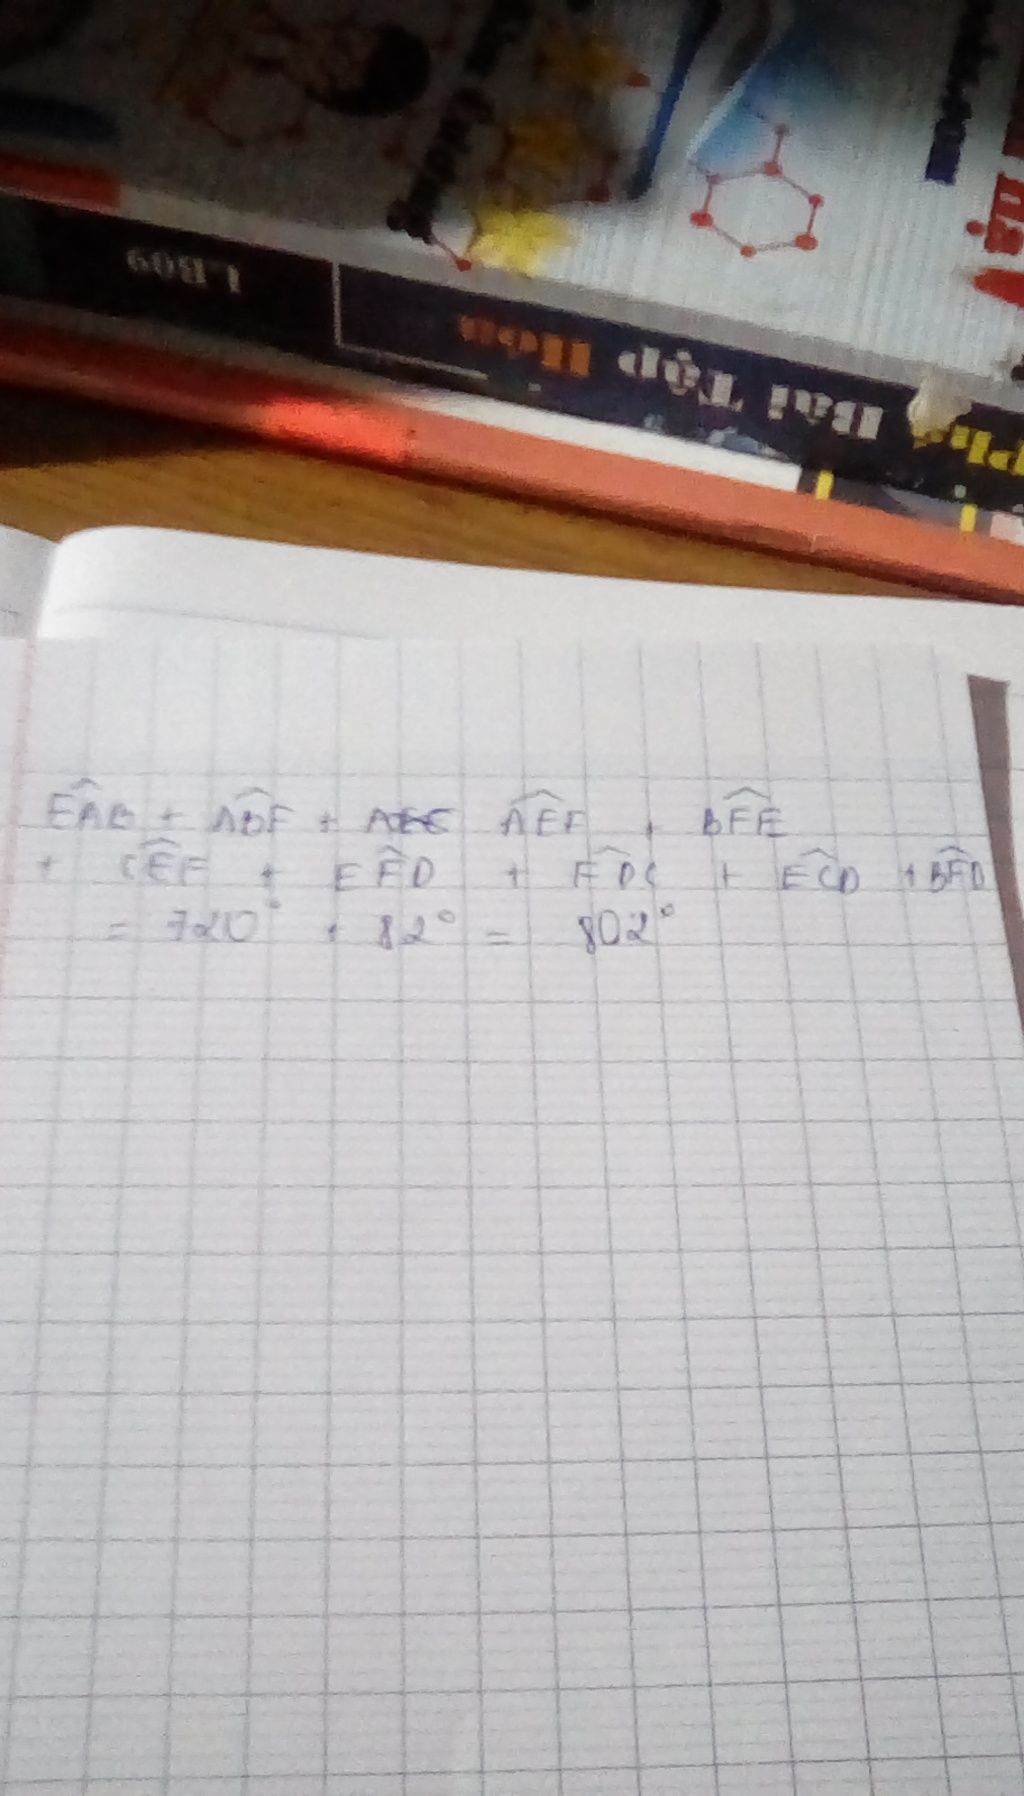 LB09
Bài Tập Hóa
EÂB + ABF + AEF + BFE
+ CEF + EFD + FDC + ECD + BFD
= 720° + 82° = 802°